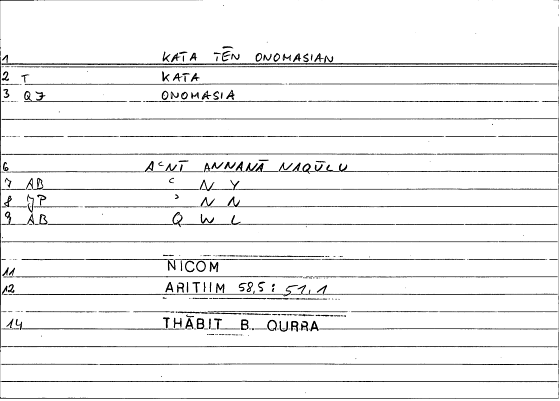 1 KATA TĒN ONOMASIAN
2 T KATA
3 QJ ONOMASIA
6 AʿNĪ ANNANĀ NAQŪLU
7 AB ʿ N Y
8 JP ʾ N N
9 AB Q W L
11 NICOM
12 ARITHM 58,5 : 51,1
14 THĀBIT B. QURRA